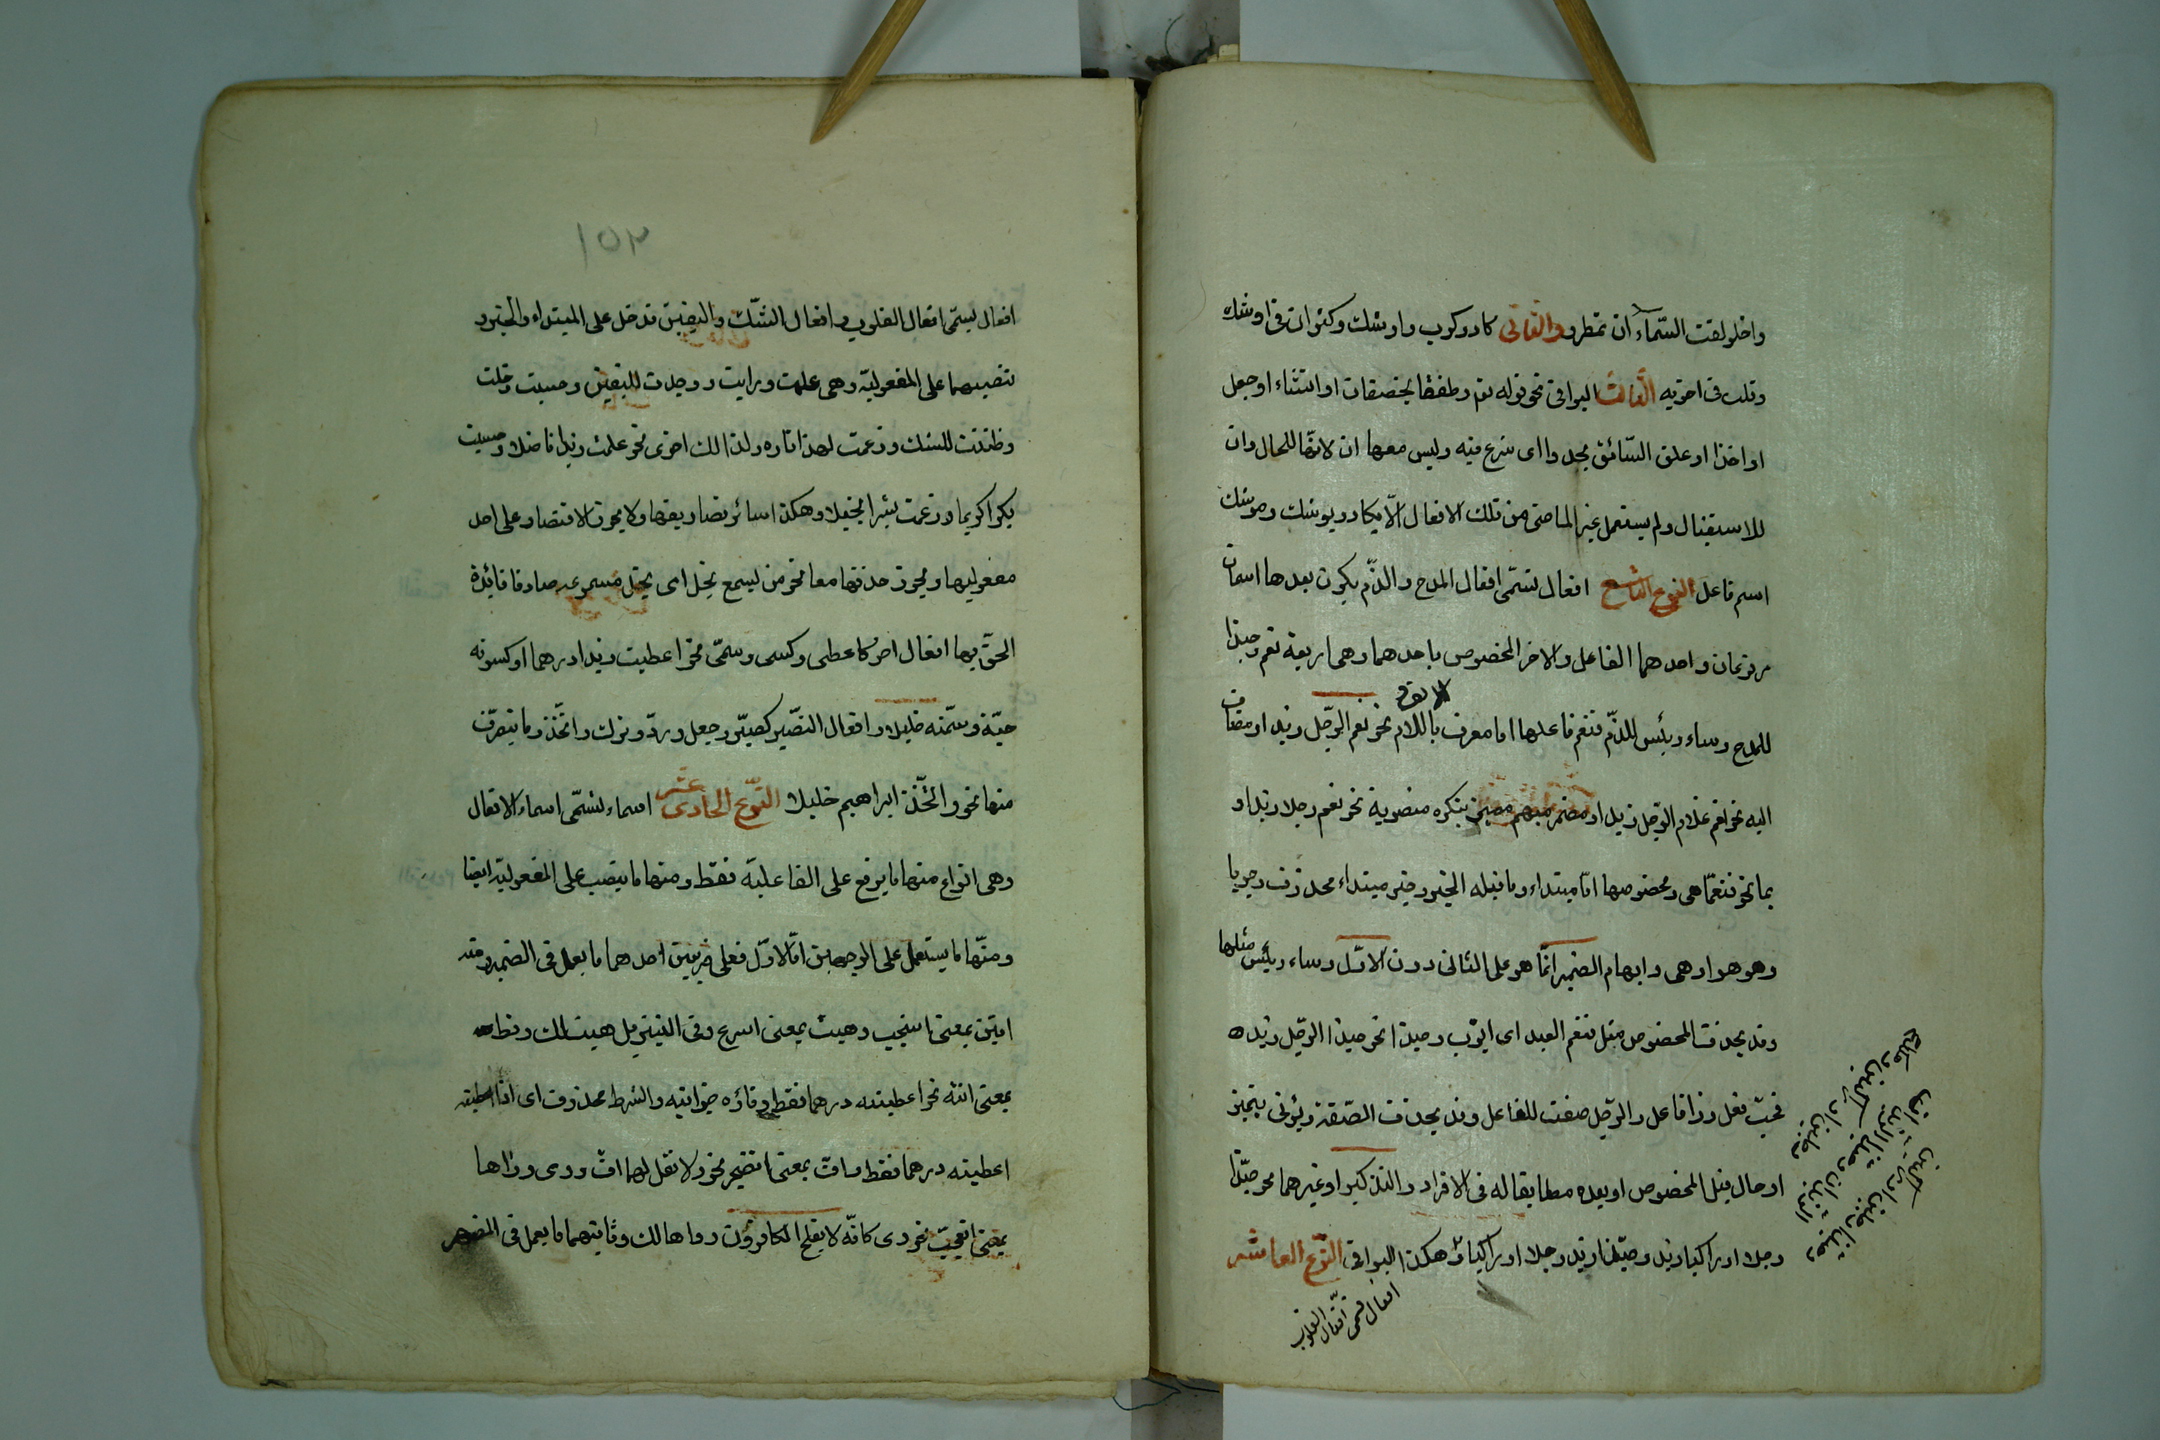 واخلولقت السّماء ان تمطر والثانى كاد وكرب واوشك وكثر ان فى اوشك
وقلت فى اخويه الثالث البواقى نحو قوله تع وطفقا يخصفان او انشاء او جعل
او اخذ او علق السّائق يحدوا اى شرع فيه وليس معها ان لانّها للحال وان
للاستقبال ولم يستعمل غير الماضى من تلك الافعال الّا يكاد ويوشك وموشك
اسم فاعل النوع التاسع افعال تسمّى افعال المدح والذّم يكون بعدها اسمان
مرفوعان واحدهما الفاعل والاخر المخصوص باحدهما وهى اربعة نعم وحبذا
للمدح وساء وبئس للذّم فنعم فاعلها اما معرف باللام نحو نعم الرّجل زيد او مضاف
اليه نحو نعم غلام الرّجل زيد او مضمر مبهم مميز بنكره منصوبة نحو نعم رجلا زيد او
بما نحو فنعمّا هى ومخصوصها امّا مبتداء وما قبله الخبر وخبر مبتداء محذوف وجوبا
وهو هو او هى وابهام الضمير انّما هو على الثانى دون الاوّل وساء وبئس مثلها
وقد يحذف المخصوص مثل فنعم العبد اى ايّوب وحبذا نحو حبذا الرّجل زيد
فحبّ فعل وذا فاعل والرّجل صفت للفاعل وقد يحذف الصّفة ويؤتى بتميز
او حال قبل المخصوص او بعده مطابقا له فى الافراد والتذكير او غيرهما نحو حبّذا
رجلا او راكبا زيد وحبّذا زيد رجلا او راكبا وهكذا البواقى النّوع العاشر
افعال تسمى افعال القلوب
١٥٣
افعال تسمّى افعال القلوب وافعال الشّك واليقين تدخل على المبتداء والخبر و
تنصبهما على المفعوليّة وهى علمت ورايت ووجدت لليقين وحسبت وخلت
وظننت للشك وزعمت لهذا تاره ولذالك اخرى نحو علمت زيدا فاضلا وحسبت
بكرا كريما وزعمت بشرا بخيلا وهكذا سائر تصاريفها ولا يجوز الاقتصار على احد
مفعوليها ويجوز حذفها معا نحو من يسمع يخل اى يخل مسموعه صادقا فائدة
الحق بها افعال اخر كاعطى وكسى وسمّى نحو اعطيت زيدا درهما او كسوته
جبّة وسمّيته خليلا وافعال التصّير كصيّر وجعل وردّ وترك واتّخذ وما يتصرّف
منها نحو واتّخذ ابراهيم خليلا النّوع الحادى عشر اسماء تسمّى اسماء الافعال
وهى انواع منها ما يرفع على الفاعلية فقط ومنها ما ينصب على المفعوليّة ايضا
ومنها ما يستعمل على الوجهين امّا الاوّل فعلى ضربين احدهما ما يعمل فى الضمير ومنه
امين بمعنى استجب وهيت بمعنى اسرع وفى التنزيل هيت لك وقط
بمعنى انته نحو اعطيته درهما فقط وفاؤه جوابيه والشرط محذوف اى اذا اعطيته
اعطيته درهما فقط واف بمعنى اتضجر نحو ولا تقل لهما اف ووى وواها
بمعنى اتعجّب نحو وى كانّه لا يفلح الكافرون وواها لك وثانيهما ما يعمل فى المضهر